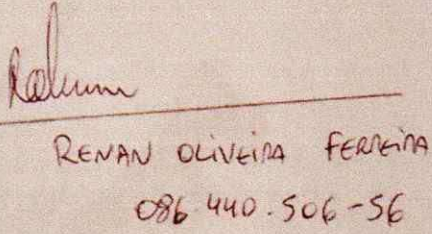 RENAN OLIVEIRA FERREIRA
086.440.506-56